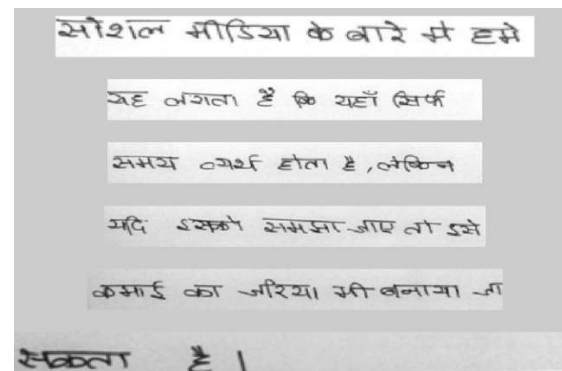 सोशल मीडिया के बारे मे हमे
यह लगता है कि यहाँ सिर्फ
समय व्यर्थ होता है, लेकिन
यदि इसको समझा जाए तो इसे
कमाई का जरिया भी बनाया जा
सकता है।